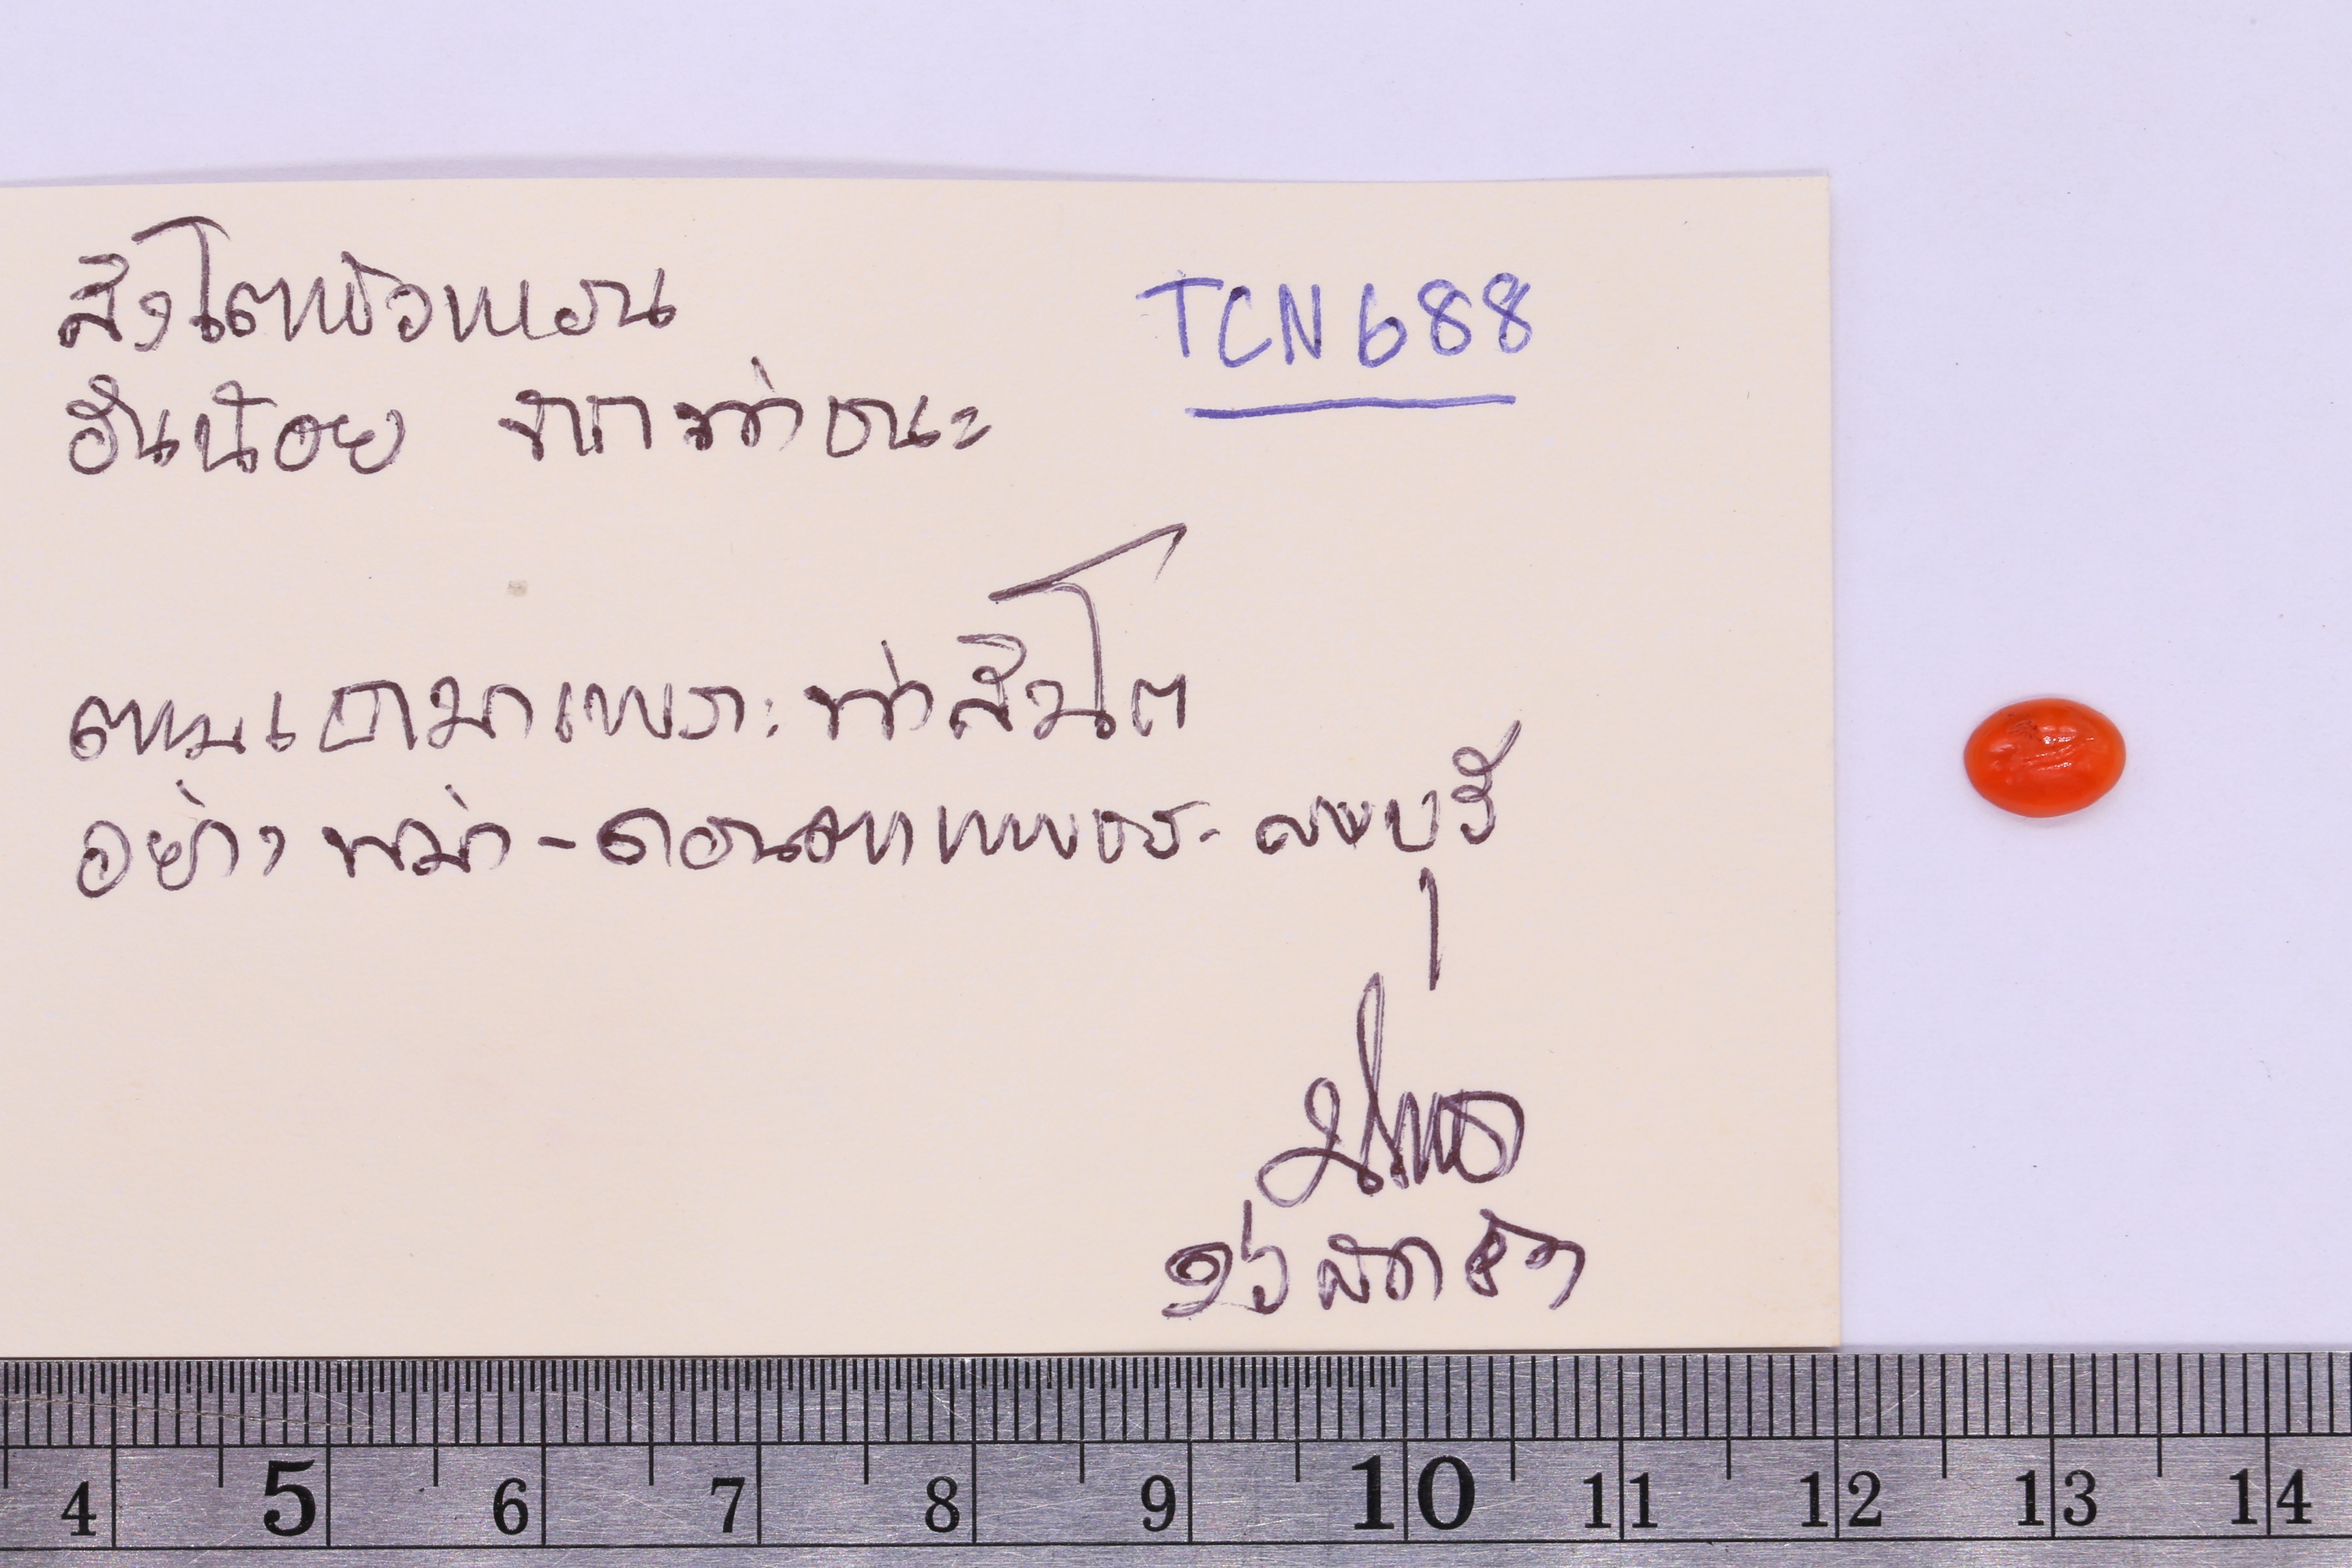 สิงโตหัวแหวน
TCN688
อันน้อย จากท่าชนะ
ตามเอามาเพราะท่าสิงโต
อย่าง พม่า - ดอนตาเพชร - ลพบุรี
4 5 6 7 8 9 10 11 12 13 14